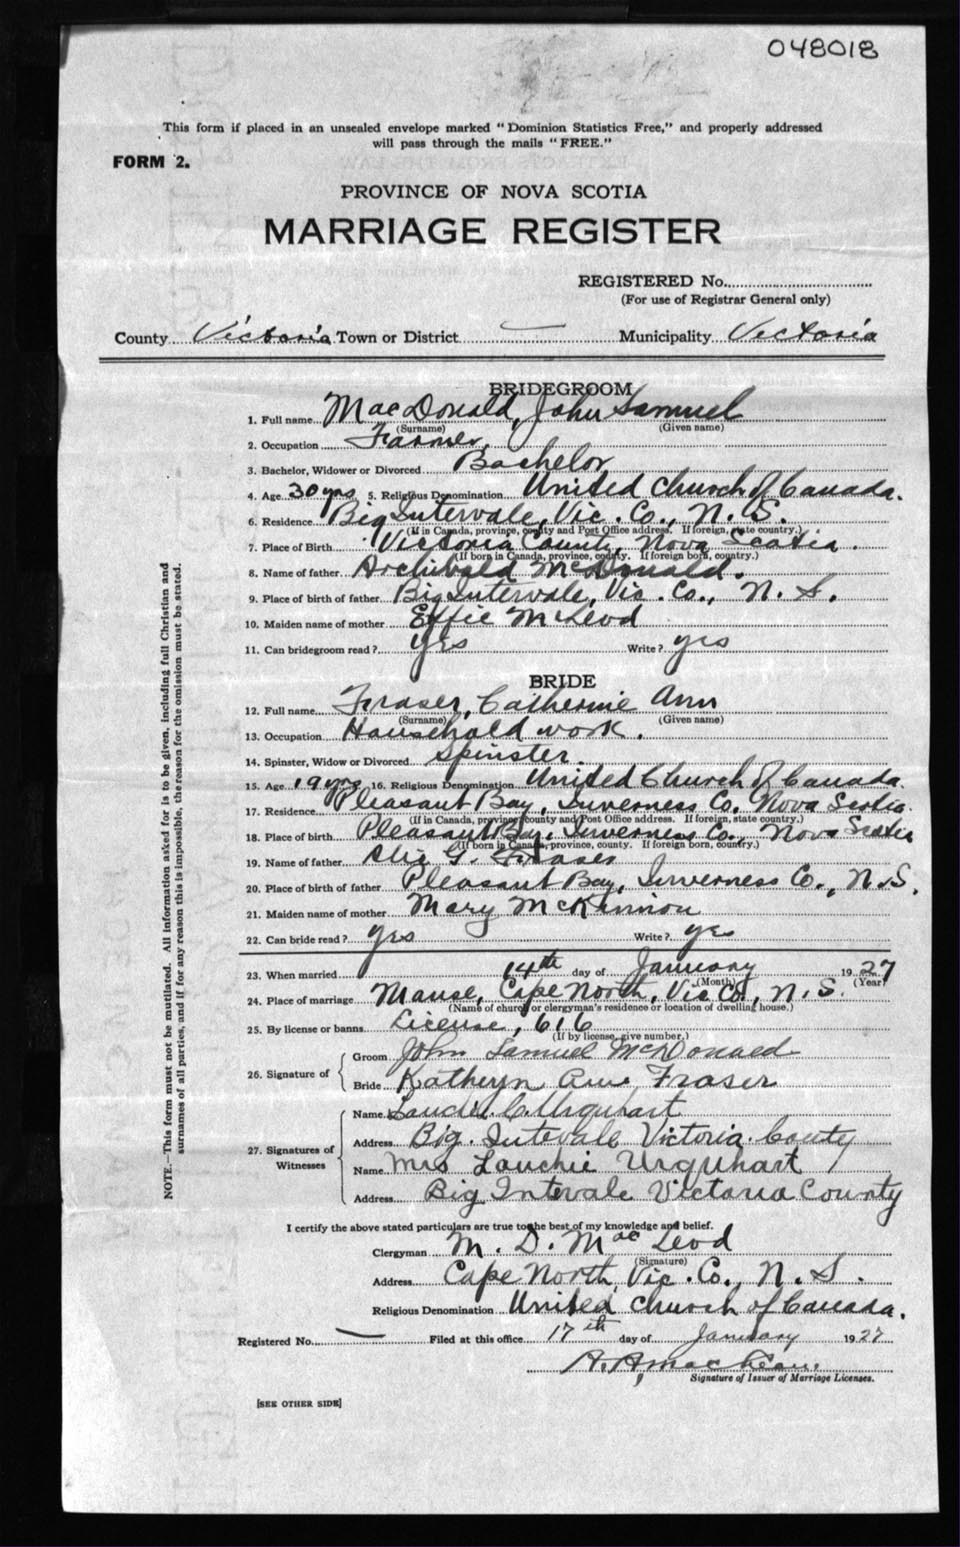 048018
This form if placed in an unsealed envelope marked "Dominion Statistics Free," and properly addressed
will pass through the mails "FREE."
FORM 2.
PROVINCE OF NOVA SCOTIA
MARRIAGE REGISTER
REGISTERED No.
(For use of Registrar General only)
County Victoria Town or District — Municipality Victoria
BRIDEGROOM
1. Full name MacDonald, John Samuel
(Surname) (Given name)
2. Occupation Farmer
3. Bachelor, Widower or Divorced Bachelor
4. Age 30 yrs 5. Religious Denomination United Church of Canada.
6. Residence Big Intervale, Vic. Co., N.S.
(If in Canada, province, county and Post Office address. If foreign, state country.)
7. Place of Birth Victoria County, Nova Scotia.
(If born in Canada, province, county. If foreign born, country.)
8. Name of father Archibald McDonald.
9. Place of birth of father Big Intervale, Vic. Co., N.S.
10. Maiden name of mother Effie McLeod
11. Can bridegroom read? yes Write? yes
BRIDE
12. Full name Fraser, Catherine Ann
(Surname) (Given name)
13. Occupation Household work.
14. Spinster, Widow or Divorced Spinster.
15. Age 19 yrs 16. Religious Denomination United Church of Canada.
17. Residence Pleasant Bay, Inverness Co. Nova Scotia.
(If in Canada, province, county and Post Office address. If foreign, state country.)
18. Place of birth Pleasant Bay, Inverness Co., Nova Scotia
(If born in Canada, province, county. If foreign born, country.)
19. Name of father G. Fraser
20. Place of birth of father Pleasant Bay, Inverness Co., N.S.
21. Maiden name of mother Mary McKinnon
22. Can bride read? yes Write? yes
23. When married 14th day of January 1927
(Month) (Year)
24. Place of marriage Manse, Cape North, Vic Co., N.S.
(Name of church or clergyman's residence or location of dwelling house.)
25. By license or banns License, 616
(If by license, give number.)
26. Signature of Groom John Samuel McDonald
Bride Katheryn Ann Fraser
27. Signatures of Witnesses Name C. Urquhart
Address Big Intevale Victoria County
Name Mrs Lauchie Urquhart
Address Big Intervale Victoria County
I certify the above stated particulars are true to the best of my knowledge and belief.
Clergyman M. D. MacLeod
(Signature)
Address Cape North, Vic. Co., N.S.
Religious Denomination United Church of Canada.
Registered No. — Filed at this office 17th day of January 1927
Signature of Issuer of Marriage Licenses.
[SEE OTHER SIDE]
NOTE.—This form must not be mutilated. All information asked for is to be given, including full Christian and
surnames of all parties, and if for any reason this is impossible, the reason for the omission must be stated.